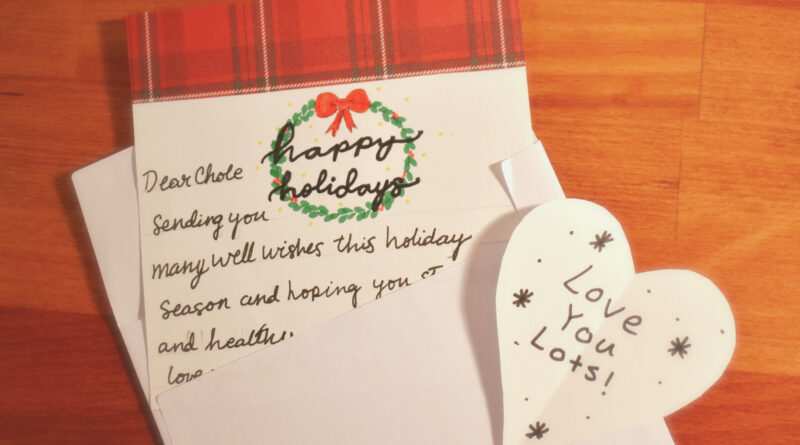 happy
holidays
Dear Chole
Sending you
many well wishes this holiday
season and hoping you
and health
love
Love
You
Lots!